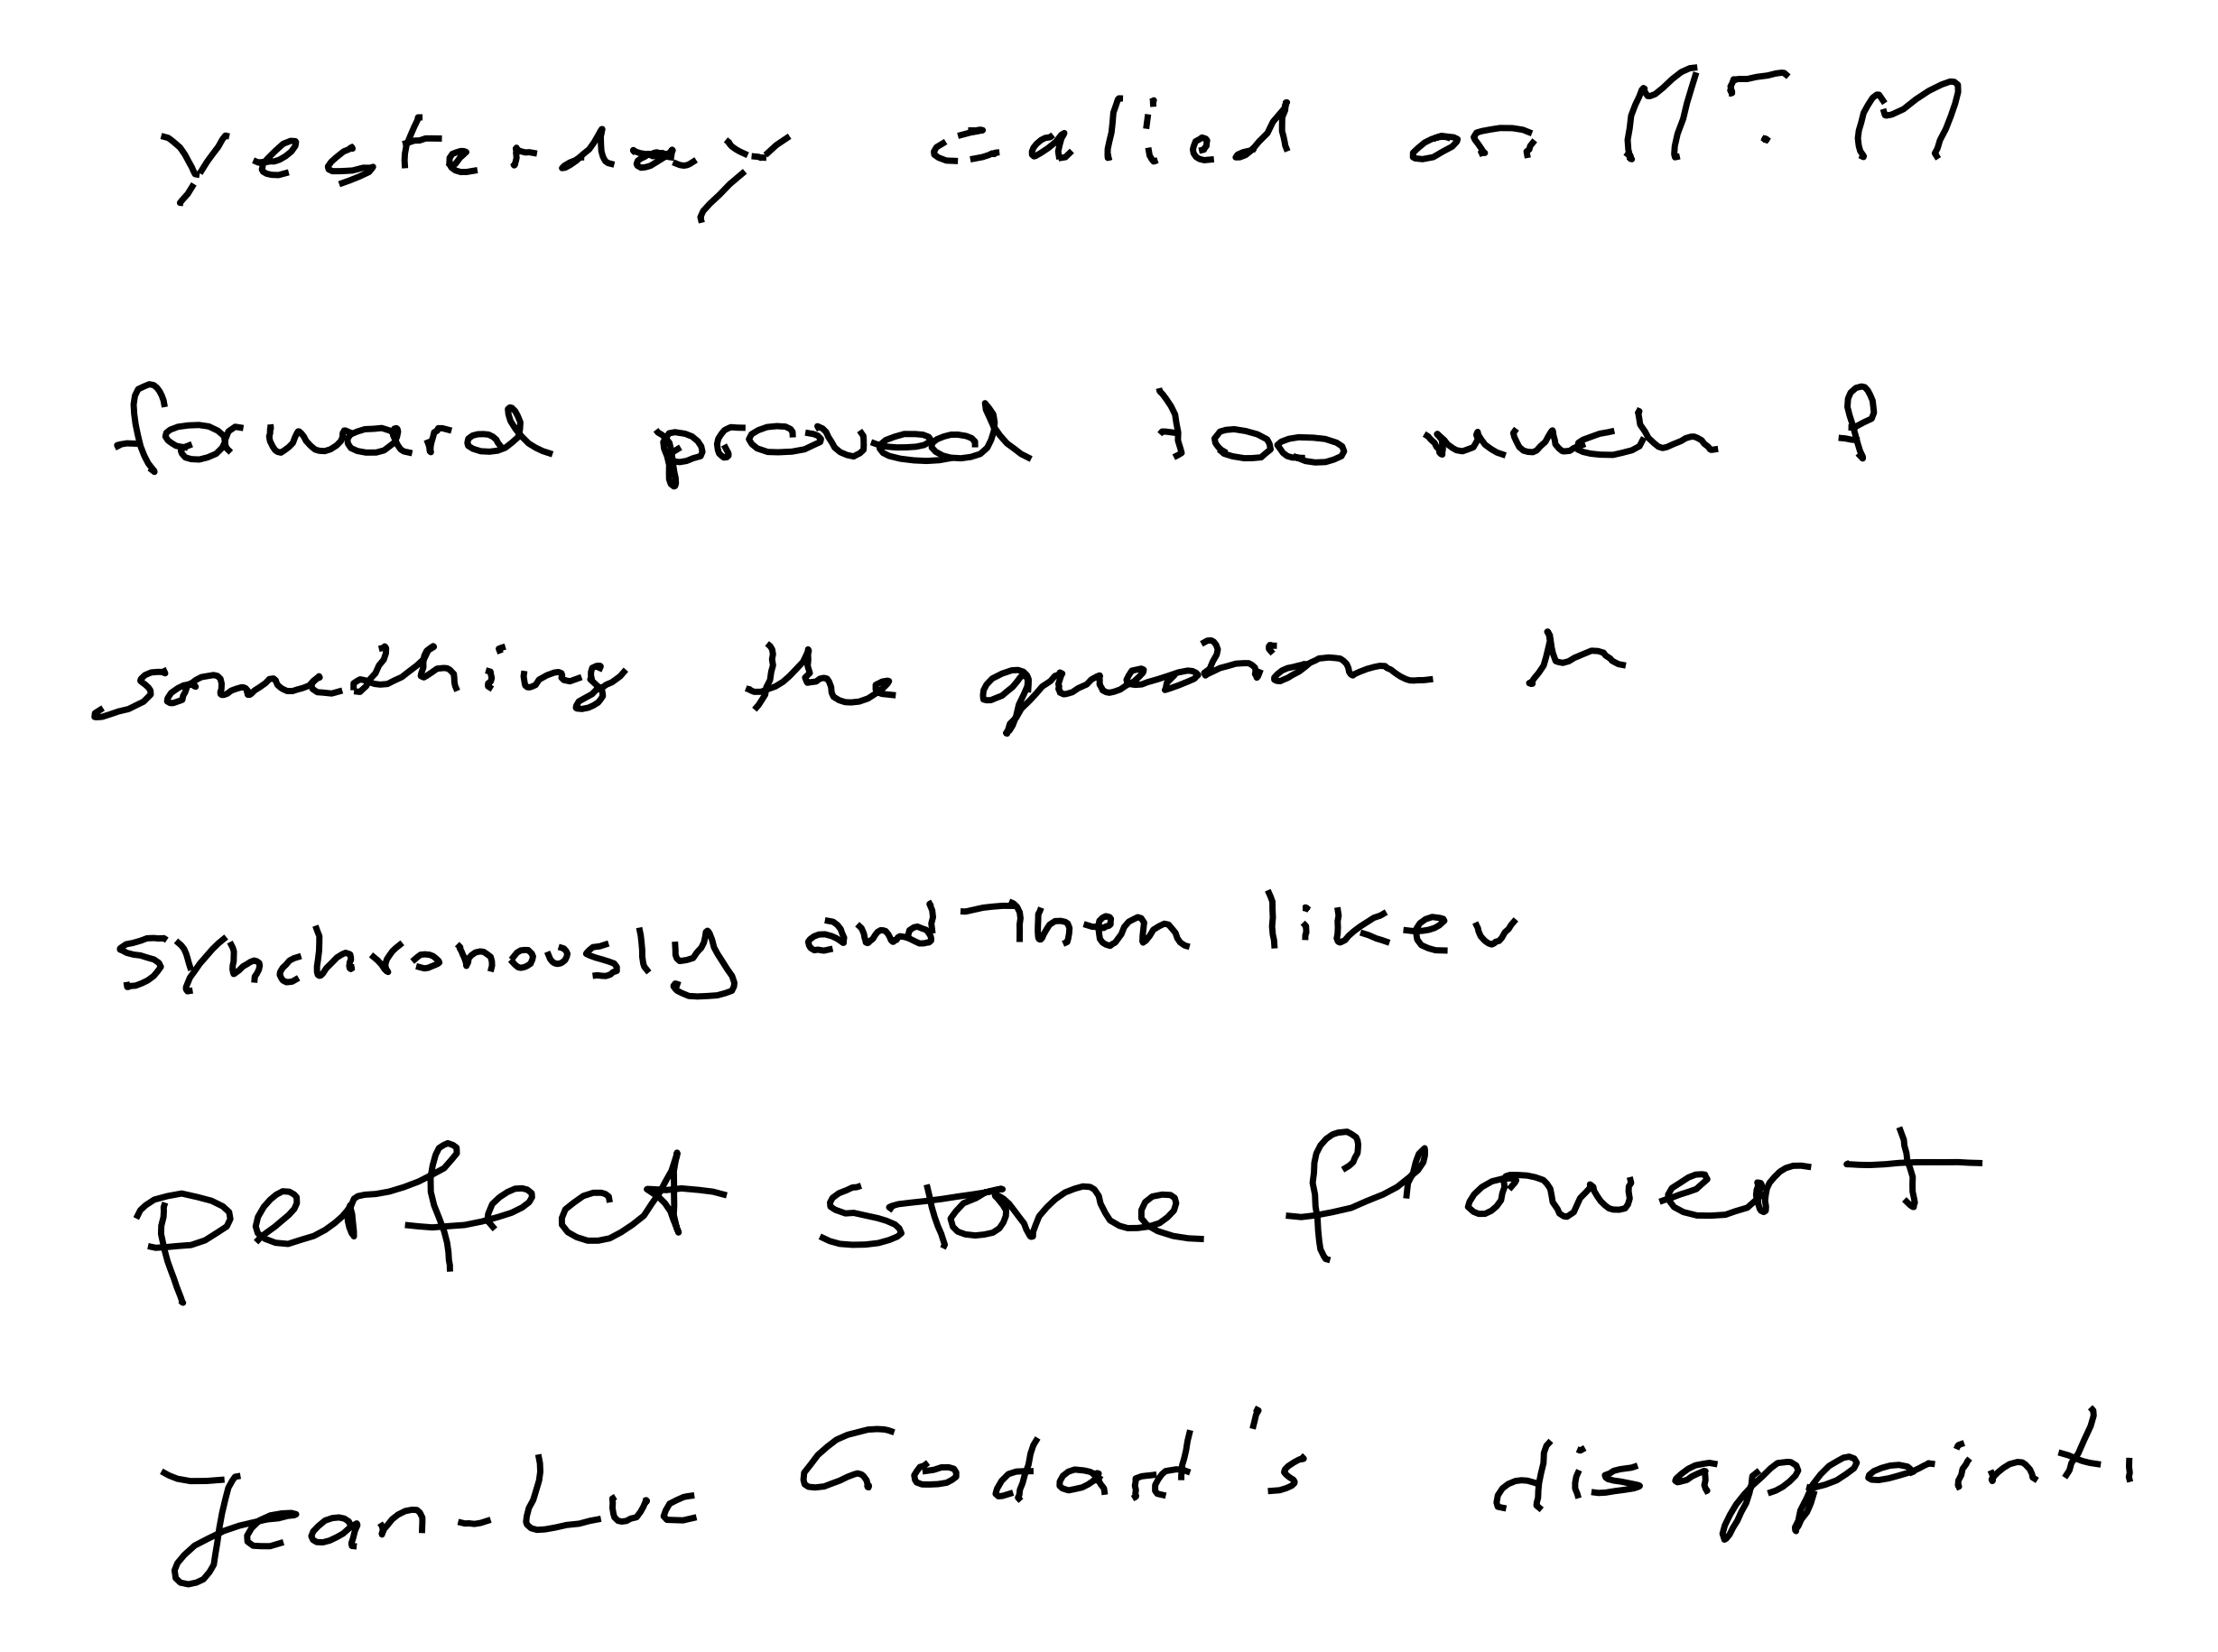 yesterday, called on Mr. M
found passed bound A
something the question h
syndonesly and then liker
perfect stone Planet
Jean-Luc Godard's disappoint.